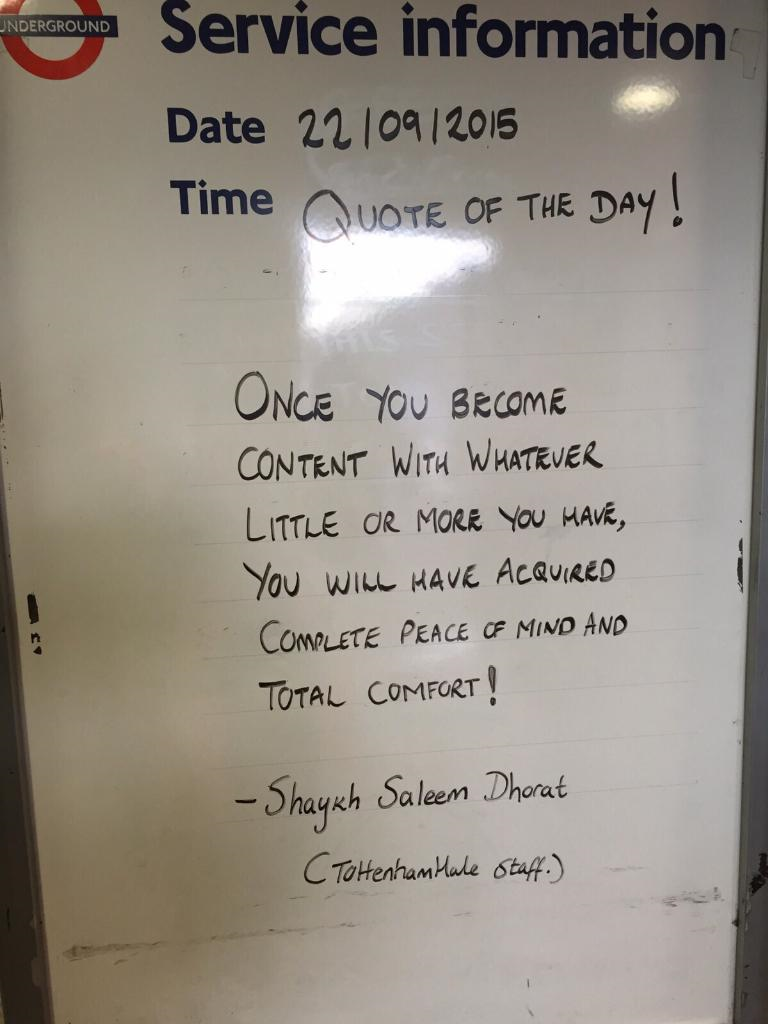 UNDERGROUND
Service information
Date 22/09/2015
Time QUOTE OF THE DAY!
ONCE YOU BECOME
CONTENT WITH WHATEVER
LITTLE OR MORE YOU HAVE,
YOU WILL HAVE ACQUIRED
COMPLETE PEACE OF MIND AND
TOTAL COMFORT!
- Shaykh Saleem Dhorat
(Tottenham Hale Staff.)